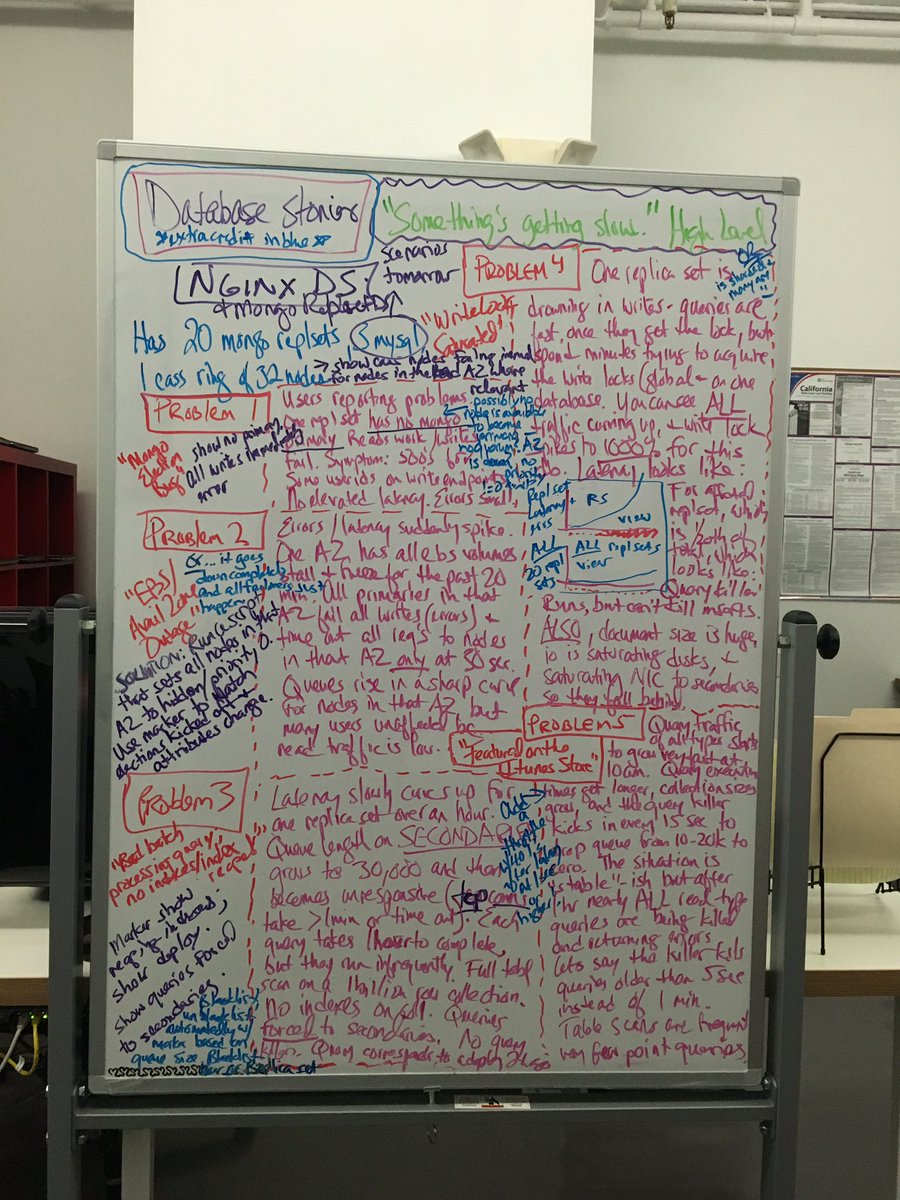 Database Stories
*extra credit in blue*
"Something's getting slow." High Level
NGINX DS
+ Mongo Replset DS
scenarios
tomorrow
Has 20 mongo replsets, 5 mysql
1 cass ring of 32 nodes
> show cass nodes
for nodes in the AZ where
relevant
PROBLEM 1
"Mongo
Election
Bug"
show no primary,
all writes immediately
error
Users reporting problems.
One replset has no mongo
primary. Reads work, writes
fail. Symptom: 500s for
some userids on write endpoints
No elevated latency. Errors small,
possibly no
node is available
to become
primary
AZ
is down, no
priority
PROBLEM 2
"EBS/
Avail Zone
Outage"
Or... it goes
down completely
and all failovers just
happen
SOLUTION: Run script
that sets all nodes in that
AZ to hidden/priority 0.
Use marker to match
elections kicked off +
attributes change.
Errors/latency suddenly spike.
One AZ has all ebs volumes
stall + freeze for the past 20
min. All primaries in that
AZ fail all writes (errors) +
time out all reqs to nodes
in that AZ only at 30 sec.
Queues rise in a sharp curve
for nodes in that AZ but
many users unaffected bc
read traffic is low.
Problem 3
"Bad batch
processing query,
no indexes/index
Marker show
show deploy.
show queries forced
to secondaries.
Blacklist/
unblacklist
automatedly w/
marker based on
queue size. Blacklist
Latency slowly curves up for
one replica set over an hour.
Queue length on SECONDARIES
grows to 30,000 and then
becomes unresponsive (tcp conns
take >1min or time out). Each
query takes 1 hour to complete,
but they run infrequently. Full table
scan on a 1 billion row collection.
No indexes on coll. Queries
forced to secondaries. No query
killer. Query corresponds to a deploy
PROBLEM 4
"Write Lock
Saturated"
One replica set is
drowning in writes - queries are
fast, once they get the lock, but
spend minutes trying to acquire
the write locks (global or on one
database. You can see ALL
traffic coming up, + write lock
spikes to 1000% for this
Latency looks like:
OR
is sharded +
Replset
Latency
RS
VIEW
ALL
20 repl
sets
ALL replsets
view
For affected
replset, which
is 1/20th of
total, which
looks like:
Query killer
Runs, but can't kill inserts.
ALSO, document size is huge,
io is saturating disks, +
saturating NIC to secondaries
so they fall behind.
PROBLEM 5
"Featured on the
iTunes Store"
Query traffic
of all types starts
to grow very fast at
10am. Query execution
times get longer, collection sizes
grow, and the query killer
kicks in every 15 sec to
drop queue from 10-20k to
zero. The situation is
"stable"-ish but after
1hr nearly ALL read type
queries are being killed
and returning errors
Lets say the killer kills
queries older than 5 sec
instead of 1 min.
Table scans are frequent
very few point queries
California